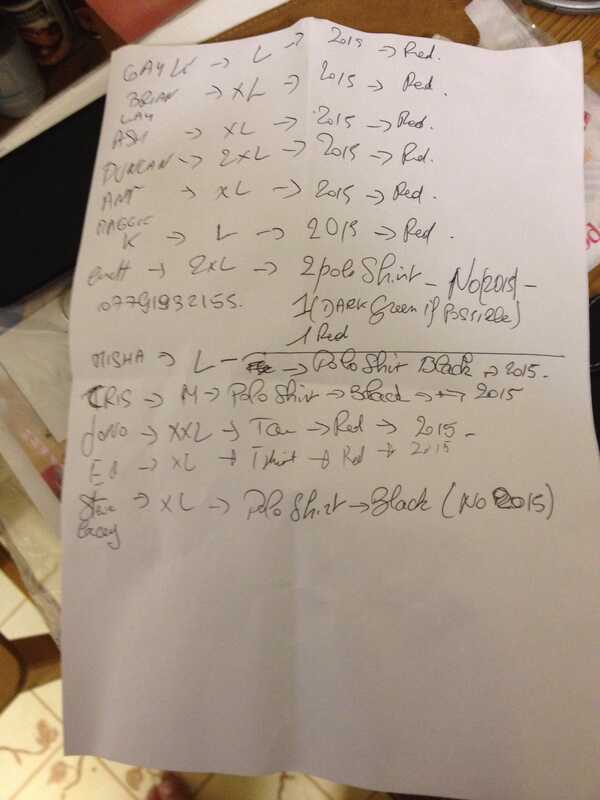 GAYLE → L → 2015 → Red.
BRIAN → XL → 2015 → Red.
LAY
ASH → XL → 2015 → Red.
DUNCAN → 2XL → 2015 → Red.
ANT → XL → 2015 → Red.
MAGGIE
K → L → 2015 → Red.
→ 2XL → 2 polo Shirt - No (2015) -
07791932155. 1 (DARK Green if Possible)
1 Red
MISHA → L - → Polo Shirt Black → 2015 -
CRIS → M → Polo Shirt → Black → 2015
→ XXL → → Red → 2015 -
Ed → XL → Tshirt → Red → 2015
Steve → XL → Polo Shirt → Black (No 2015)
Lacey